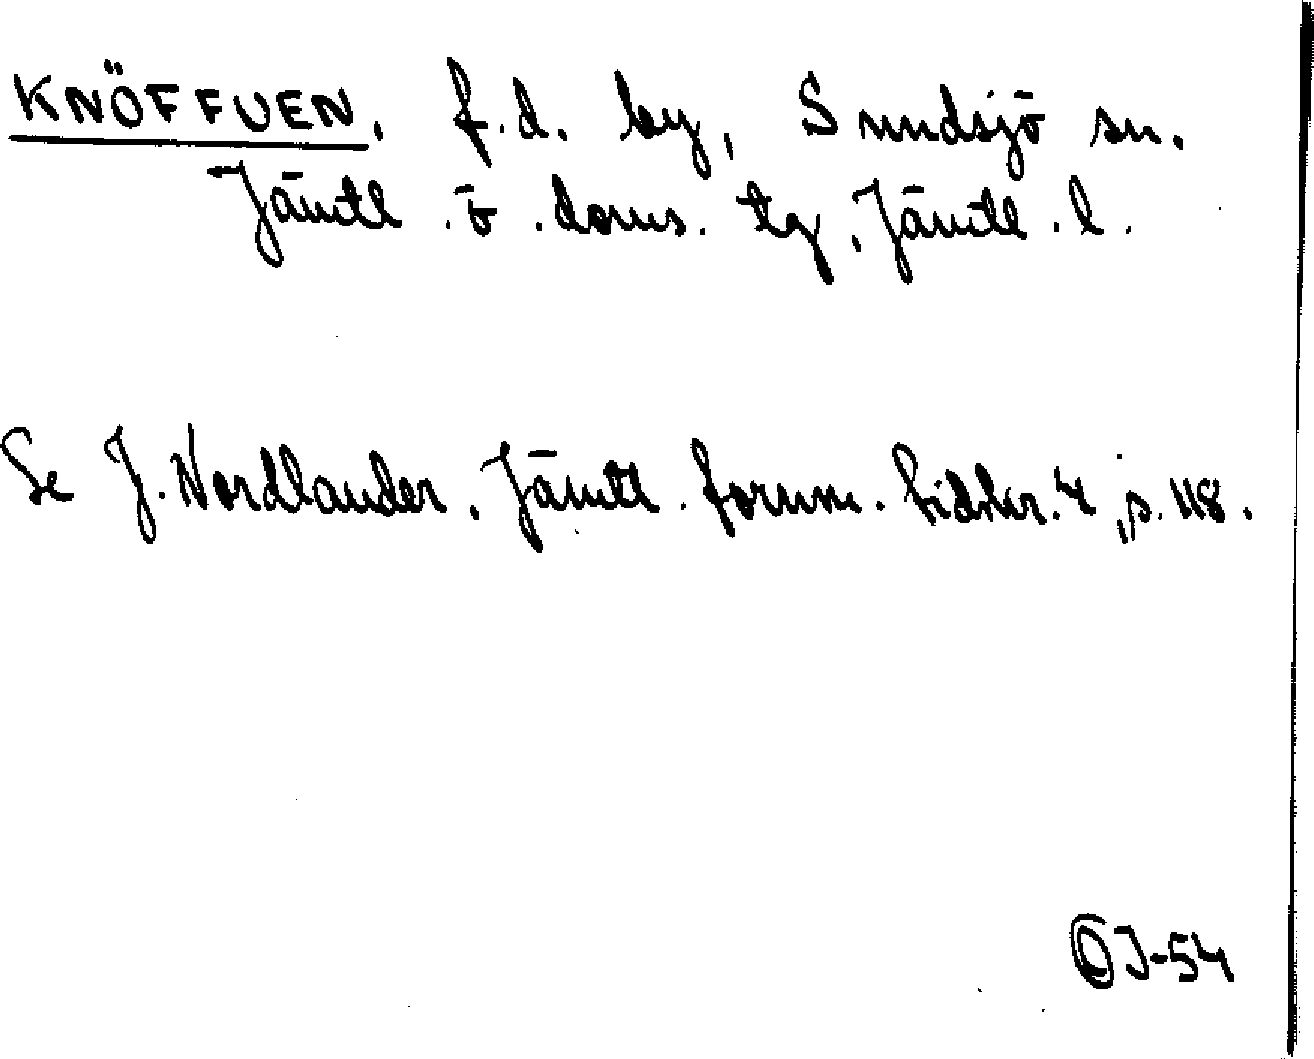 KNÖFFUEN, f.d. by, Sundsjö sn.
Jämtl. ö. doms. tg, Jämtl. l.
Se J. Nordlander, Jämtl. fornm. tidskr. 4, s. 118.
OJ-54